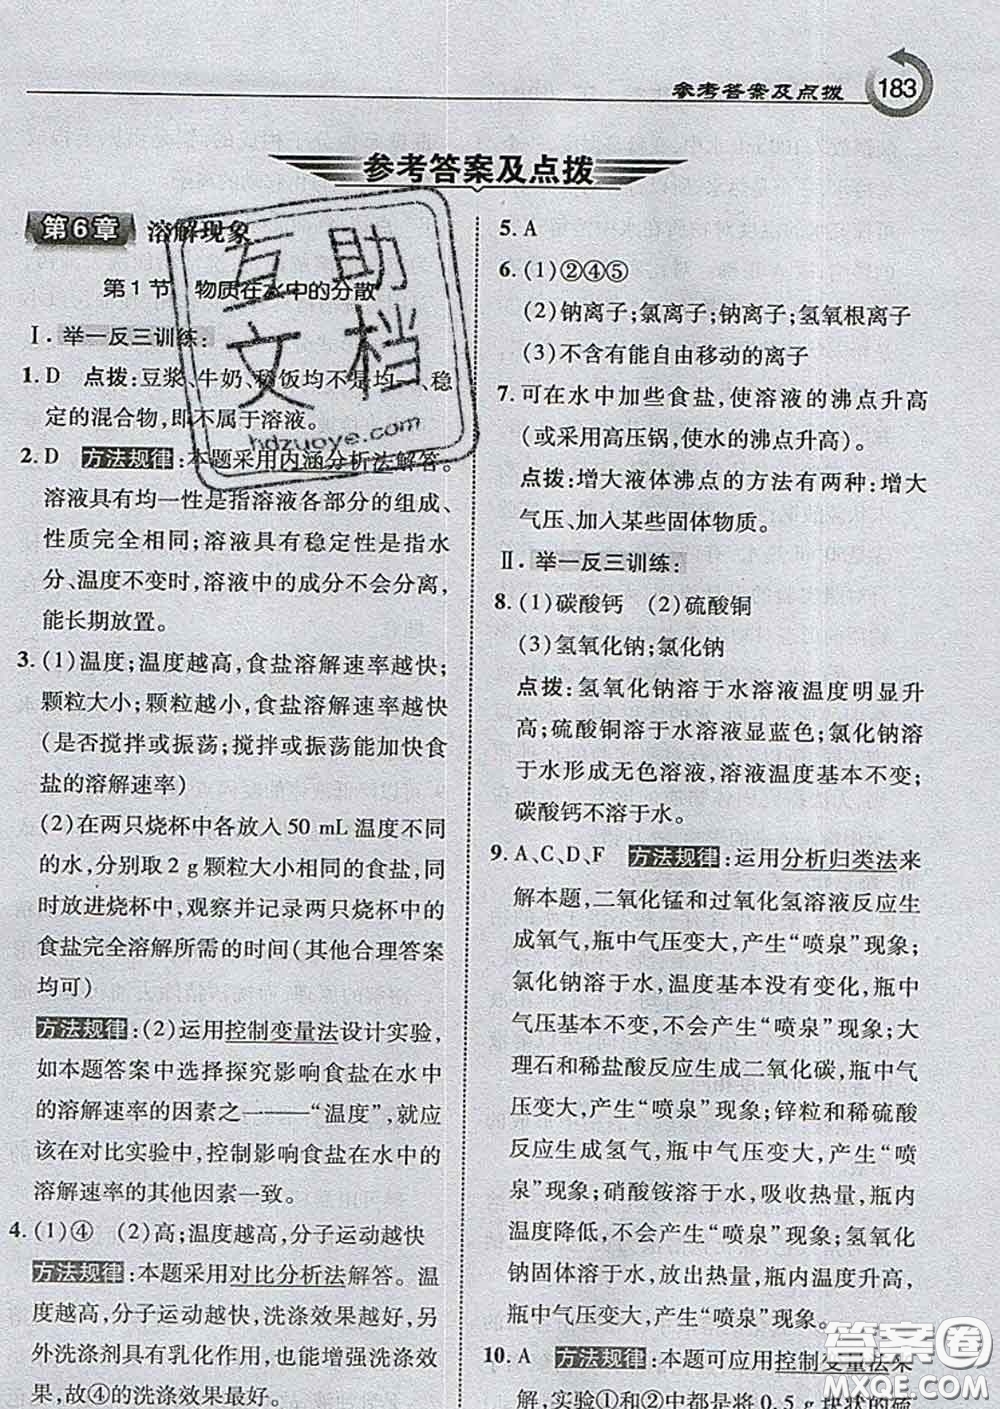 参考答案及点拨
183
参考答案及点拨
第6章 溶解现象
第1节 物质在水中的分散
Ⅰ.举一反三训练:
1. D 点拨:豆浆、牛奶、稀饭均不是均一、稳
定的混合物,即不属于溶液。
2. D 方法规律:本题采用内涵分析法解答。
溶液具有均一性是指溶液各部分的组成、
性质完全相同;溶液具有稳定性是指水
分、温度不变时,溶液中的成分不会分离,
能长期放置。
3. (1)温度;温度越高,食盐溶解速率越快;
颗粒大小;颗粒越小,食盐溶解速率越快
(是否搅拌或振荡;搅拌或振荡能加快食
盐的溶解速率)
(2)在两只烧杯中各放入50 mL温度不同
的水,分别取2 g颗粒大小相同的食盐,同
时放进烧杯中,观察并记录两只烧杯中的
食盐完全溶解所需的时间(其他合理答案
均可)
方法规律:(2)运用控制变量法设计实验,
如本题答案中选择探究影响食盐在水中
的溶解速率的因素之一——“温度”,就应
该在对比实验中,控制影响食盐在水中的
溶解速率的其他因素一致。
4. (1)④ (2)高;温度越高,分子运动越快
方法规律:本题采用对比分析法解答。温
度越高,分子运动越快,洗涤效果越好,另
外洗涤剂具有乳化作用,也能增强洗涤效
果,故④的洗涤效果最好。
5. A
6. (1)②④⑤
(2)钠离子;氯离子;钠离子;氢氧根离子
(3)不含有能自由移动的离子
7. 可在水中加些食盐,使溶液的沸点升高
(或采用高压锅,使水的沸点升高)。
点拨:增大液体沸点的方法有两种:增大
气压、加入某些固体物质。
Ⅱ.举一反三训练:
8. (1)碳酸钙 (2)硫酸铜
(3)氢氧化钠;氯化钠
点拨:氢氧化钠溶于水溶液温度明显升
高;硫酸铜溶于水溶液显蓝色;氯化钠溶
于水形成无色溶液,溶液温度基本不变;
碳酸钙不溶于水。
9. A、C、D、F 方法规律:运用分析归类法来
解本题,二氧化锰和过氧化氢溶液反应生
成氧气,瓶中气压变大,产生“喷泉”现象;
氯化钠溶于水,温度基本没有变化,瓶中
气压基本不变,不会产生“喷泉”现象;大
理石和稀盐酸反应生成二氧化碳,瓶中气
压变大,产生“喷泉”现象;锌粒和稀硫酸
反应生成氢气,瓶中气压变大,产生“喷
泉”现象;硝酸铵溶于水,吸收热量,瓶内
温度降低,不会产生“喷泉”现象;氢氧化
钠固体溶于水,放出热量,瓶内温度升高,
瓶中气压变大,产生“喷泉”现象。
10. A 方法规律:本题可应用控制变量法来
解,实验①和②中都是将0.5 g块状的硫
互助
文档
hdzuoye.com
答案圈
MXQE.COM